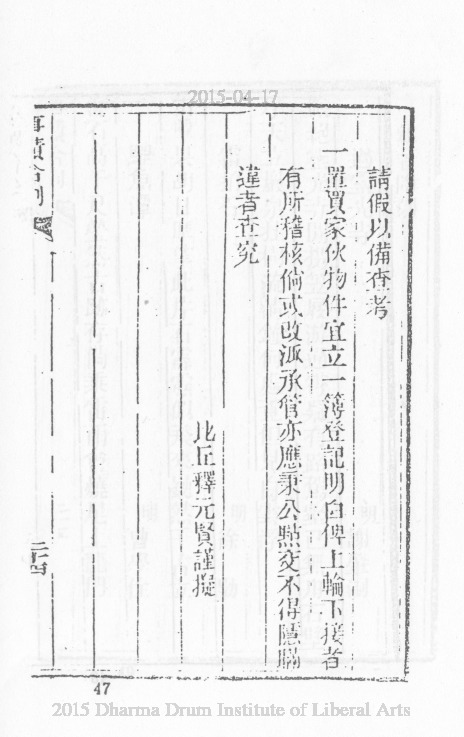 2015-04-17
請假以備查考
一置買家伙物件宜立一簿登記明白俾上輪下接者
有所稽核倘或改派承管亦應秉公點交不得隱瞞
違者查究
比丘釋元賢謹擬
事蹟合刊
二十四
47
2015 Dharma Drum Institute of Liberal Arts